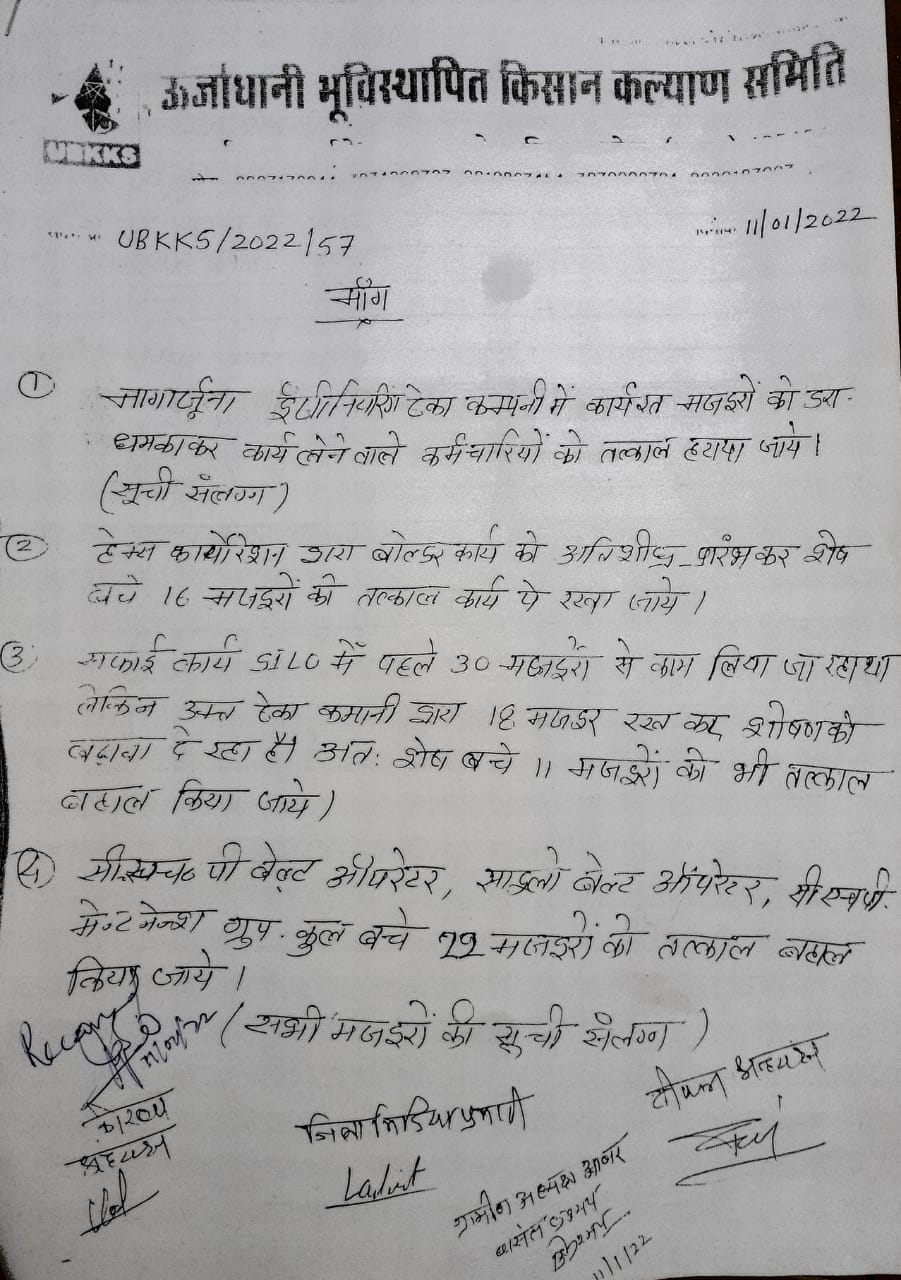 ऊर्जाधानी भूविस्थापित किसान कल्याण समिति
UBKKS
UBKKS/2022/57
11/01/2022
माँग
① नागार्जूना ईंजीनियरिंग ठेका कम्पनी में कार्यरत मजदूरों को डरा-
धमकाकर कार्य लेने वाले कर्मचारियों को तत्काल हटाया जाये।
(सूची संलग्न)
② कार्पोरेशन द्वारा बोल्डर कार्य को अतिशीघ्र प्रारंभ कर शेष
बचे 16 मजदूरों को तत्काल कार्य पे रखा जाये।
③ सफाई कार्य SILO में पहले 30 मजदूरों से काम लिया जा रहा था
लेकिन उक्त ठेका कम्पनी द्वारा 18 मजदूर रख कर शोषण को
बढ़ावा दे रहा है। अतः शेष बचे 11 मजदूरों को भी तत्काल
बहाल किया जाये।
④ सी.एच.पी बेल्ट ऑपरेटर, साइलो बेल्ट ऑपरेटर, सी एच पी.
मेन्टनेन्श ग्रुप. कुल बचे 22 मजदूरों को तत्काल बहाल
किया जाये।
(सभी मजदूरों की सूची संलग्न)
11/01/22
जिला मिडिया प्रभारी
Lalit
ग्रामीण अध्यक्ष
11/1/22